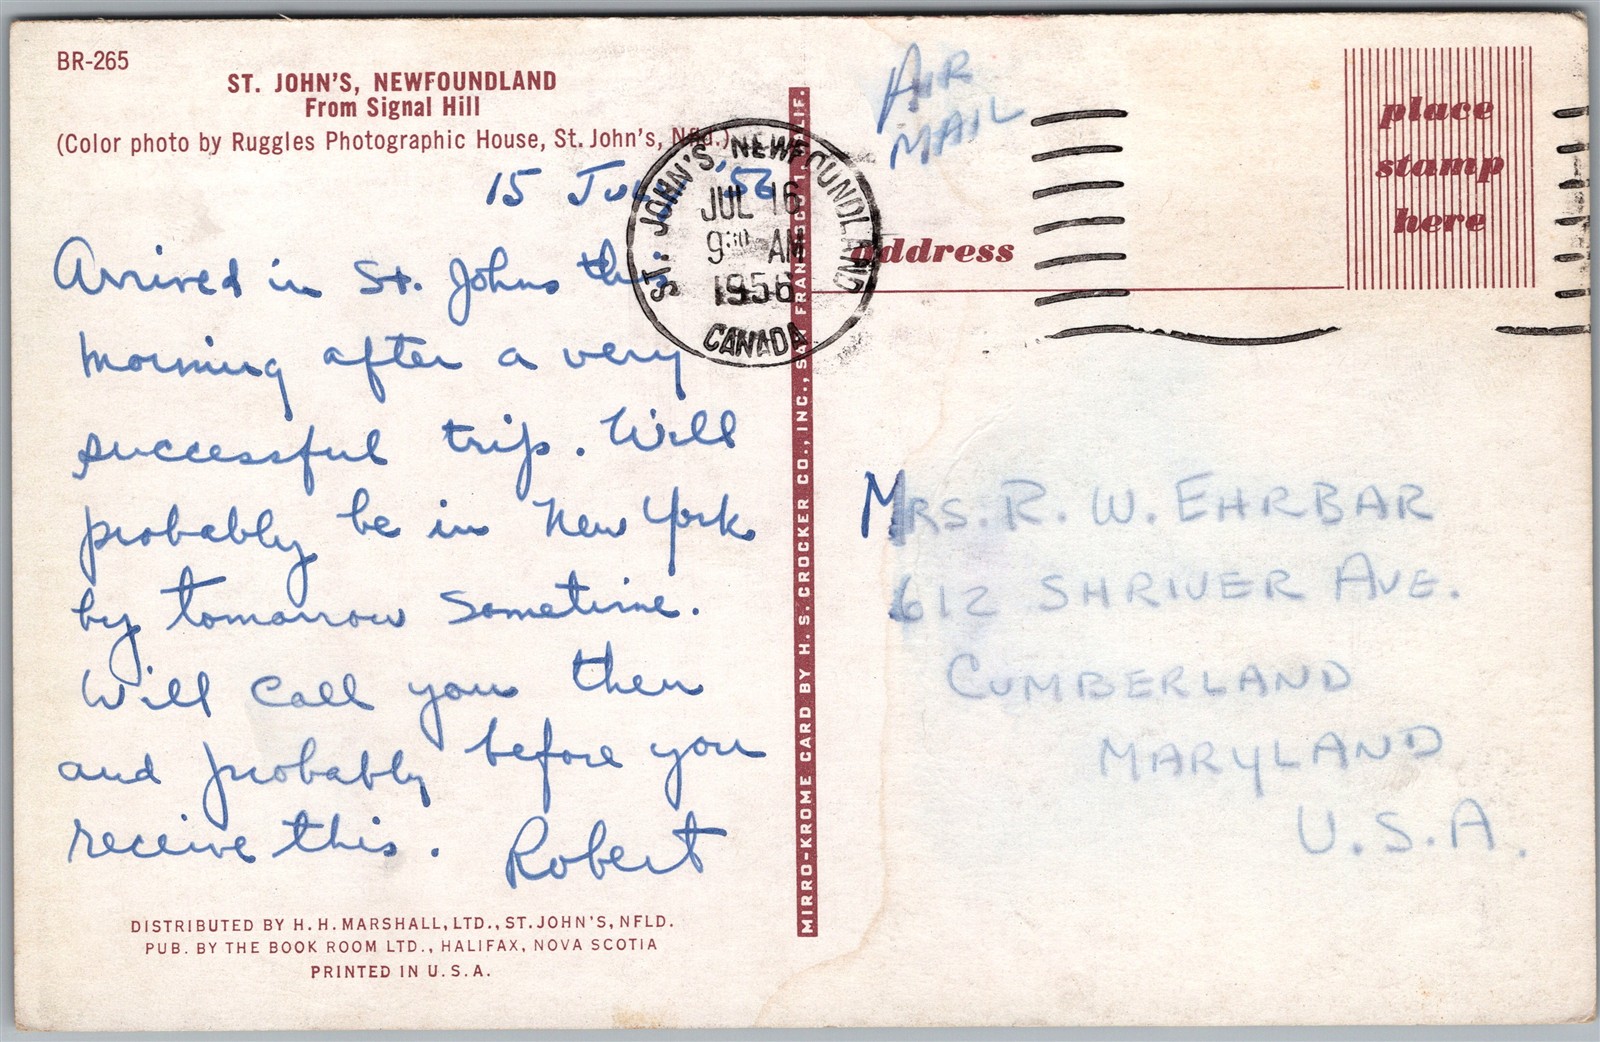 BR-265
ST. JOHN'S, NEWFOUNDLAND
From Signal Hill
(Color photo by Ruggles Photographic House, St. John's, Nfld.)
15 July '56
Arrived in St. Johns this
morning after a very
successful trip. Will
probably be in New York
by tomorrow sometime.
Will call you then
and probably before you
receive this. Robert
DISTRIBUTED BY H. H. MARSHALL, LTD., ST. JOHN'S, NFLD.
PUB. BY THE BOOK ROOM LTD., HALIFAX, NOVA SCOTIA
PRINTED IN U.S.A.
MIRRO-KROME CARD BY H. S. CROCKER CO., INC., SAN FRANCISCO 1, CALIF.
ST. JOHN'S, NEWFOUNDLAND
JUL 16
9:30 AM
1956
CANADA
AIR
MAIL
place
stamp
here
address
MRS. R. W. EHRBAR
612 SHRIVER AVE.
CUMBERLAND
MARYLAND
U.S.A.